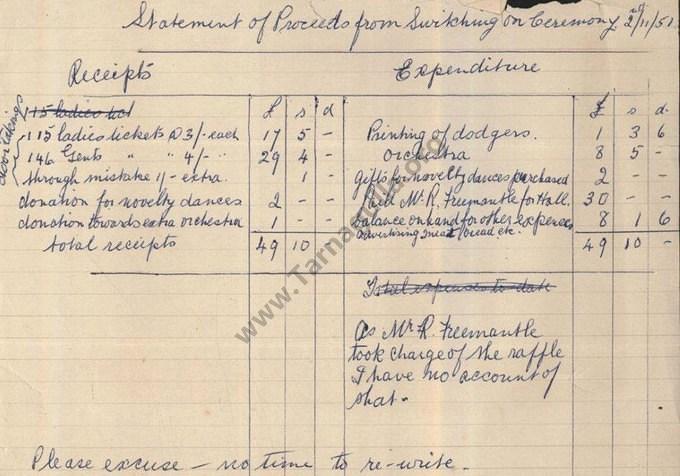 Statement of Proceeds from Switching on Ceremony 2nd/11/51.
Receipts
Expenditure
115 ladies tict
£ s d
£ s d.
door takings
115 ladies tickets @ 3/- each 17 5 -
Printing of dodgers. 1 3 6
146 Gents " " 4/- " 29 4 -
Orchestra 8 5 -
through mistake 1/- extra. 1 -
gifts for novelty dances purchased 2 - -
donation for novelty dances 2 - -
Paid Mr R. Freemantle for Hall. 30 - -
donation towards extra orchestra 1 - -
balance on hand for other expences 8 1 6
advertising meat bread etc.
total receipts 49 10 -
49 10 -
Total expenses to date
As Mr R. Freemantle
took charge of the raffle
I have no account of
that -
Please excuse - no time to re-write -
www.Tarnagulla.org